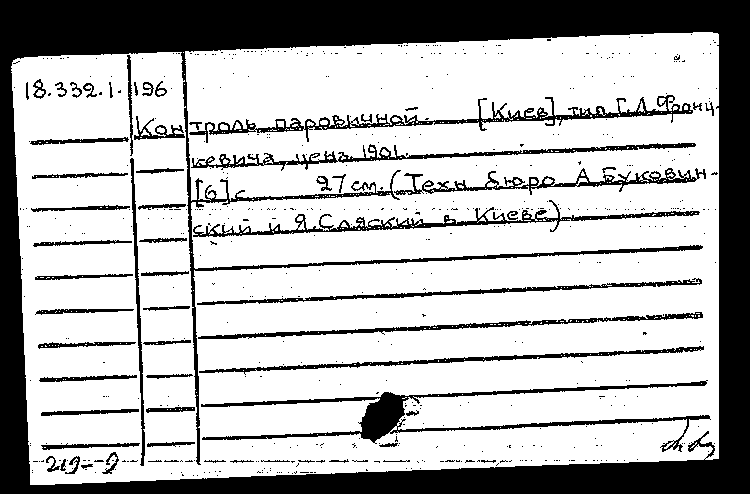 18.332.1.196
Контроль паровичной. [Киев], тип. Г.Л. Фронц-
кевича, ценз. 1901.
[6] с. 27 см. (Техн. бюро А. Буковин-
ский и Я. Сляский в Киеве)
219--9